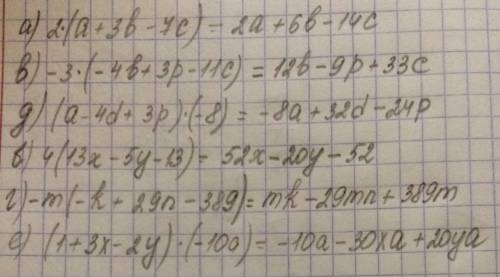 а) 2·(a+3b-7c) - 2a+6b-14c
в) -3·(-4b+3p-11c) = 12b-9p+33c
д) (a-4d+3p)·(-8) = -8a+32d-24p
б) 4(13x-5y-13) = 52x-20y-52
г) -m(-k+29n-389) = mk-29mn+389m
е) (1+3x-2y)·(-10a) = -10a-30xa+20ya